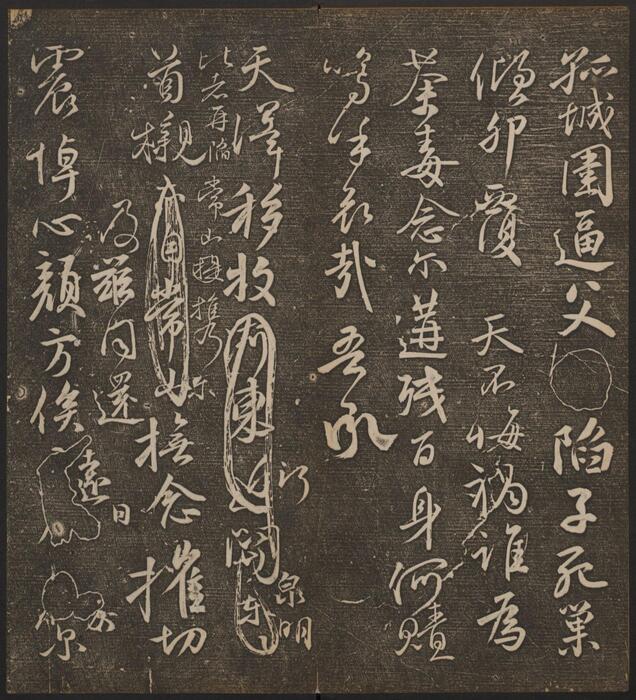 孤城圍逼父陷子死巢
傾卵覆天不悔禍誰為
荼毒念爾遘殘百身何贖
嗚乎哀哉吾承
天澤移牧東近河關泉明
比者再陷常山提攜爾
首櫬常山撫念摧切
及茲同還
震悼心顏方俟遠日爾